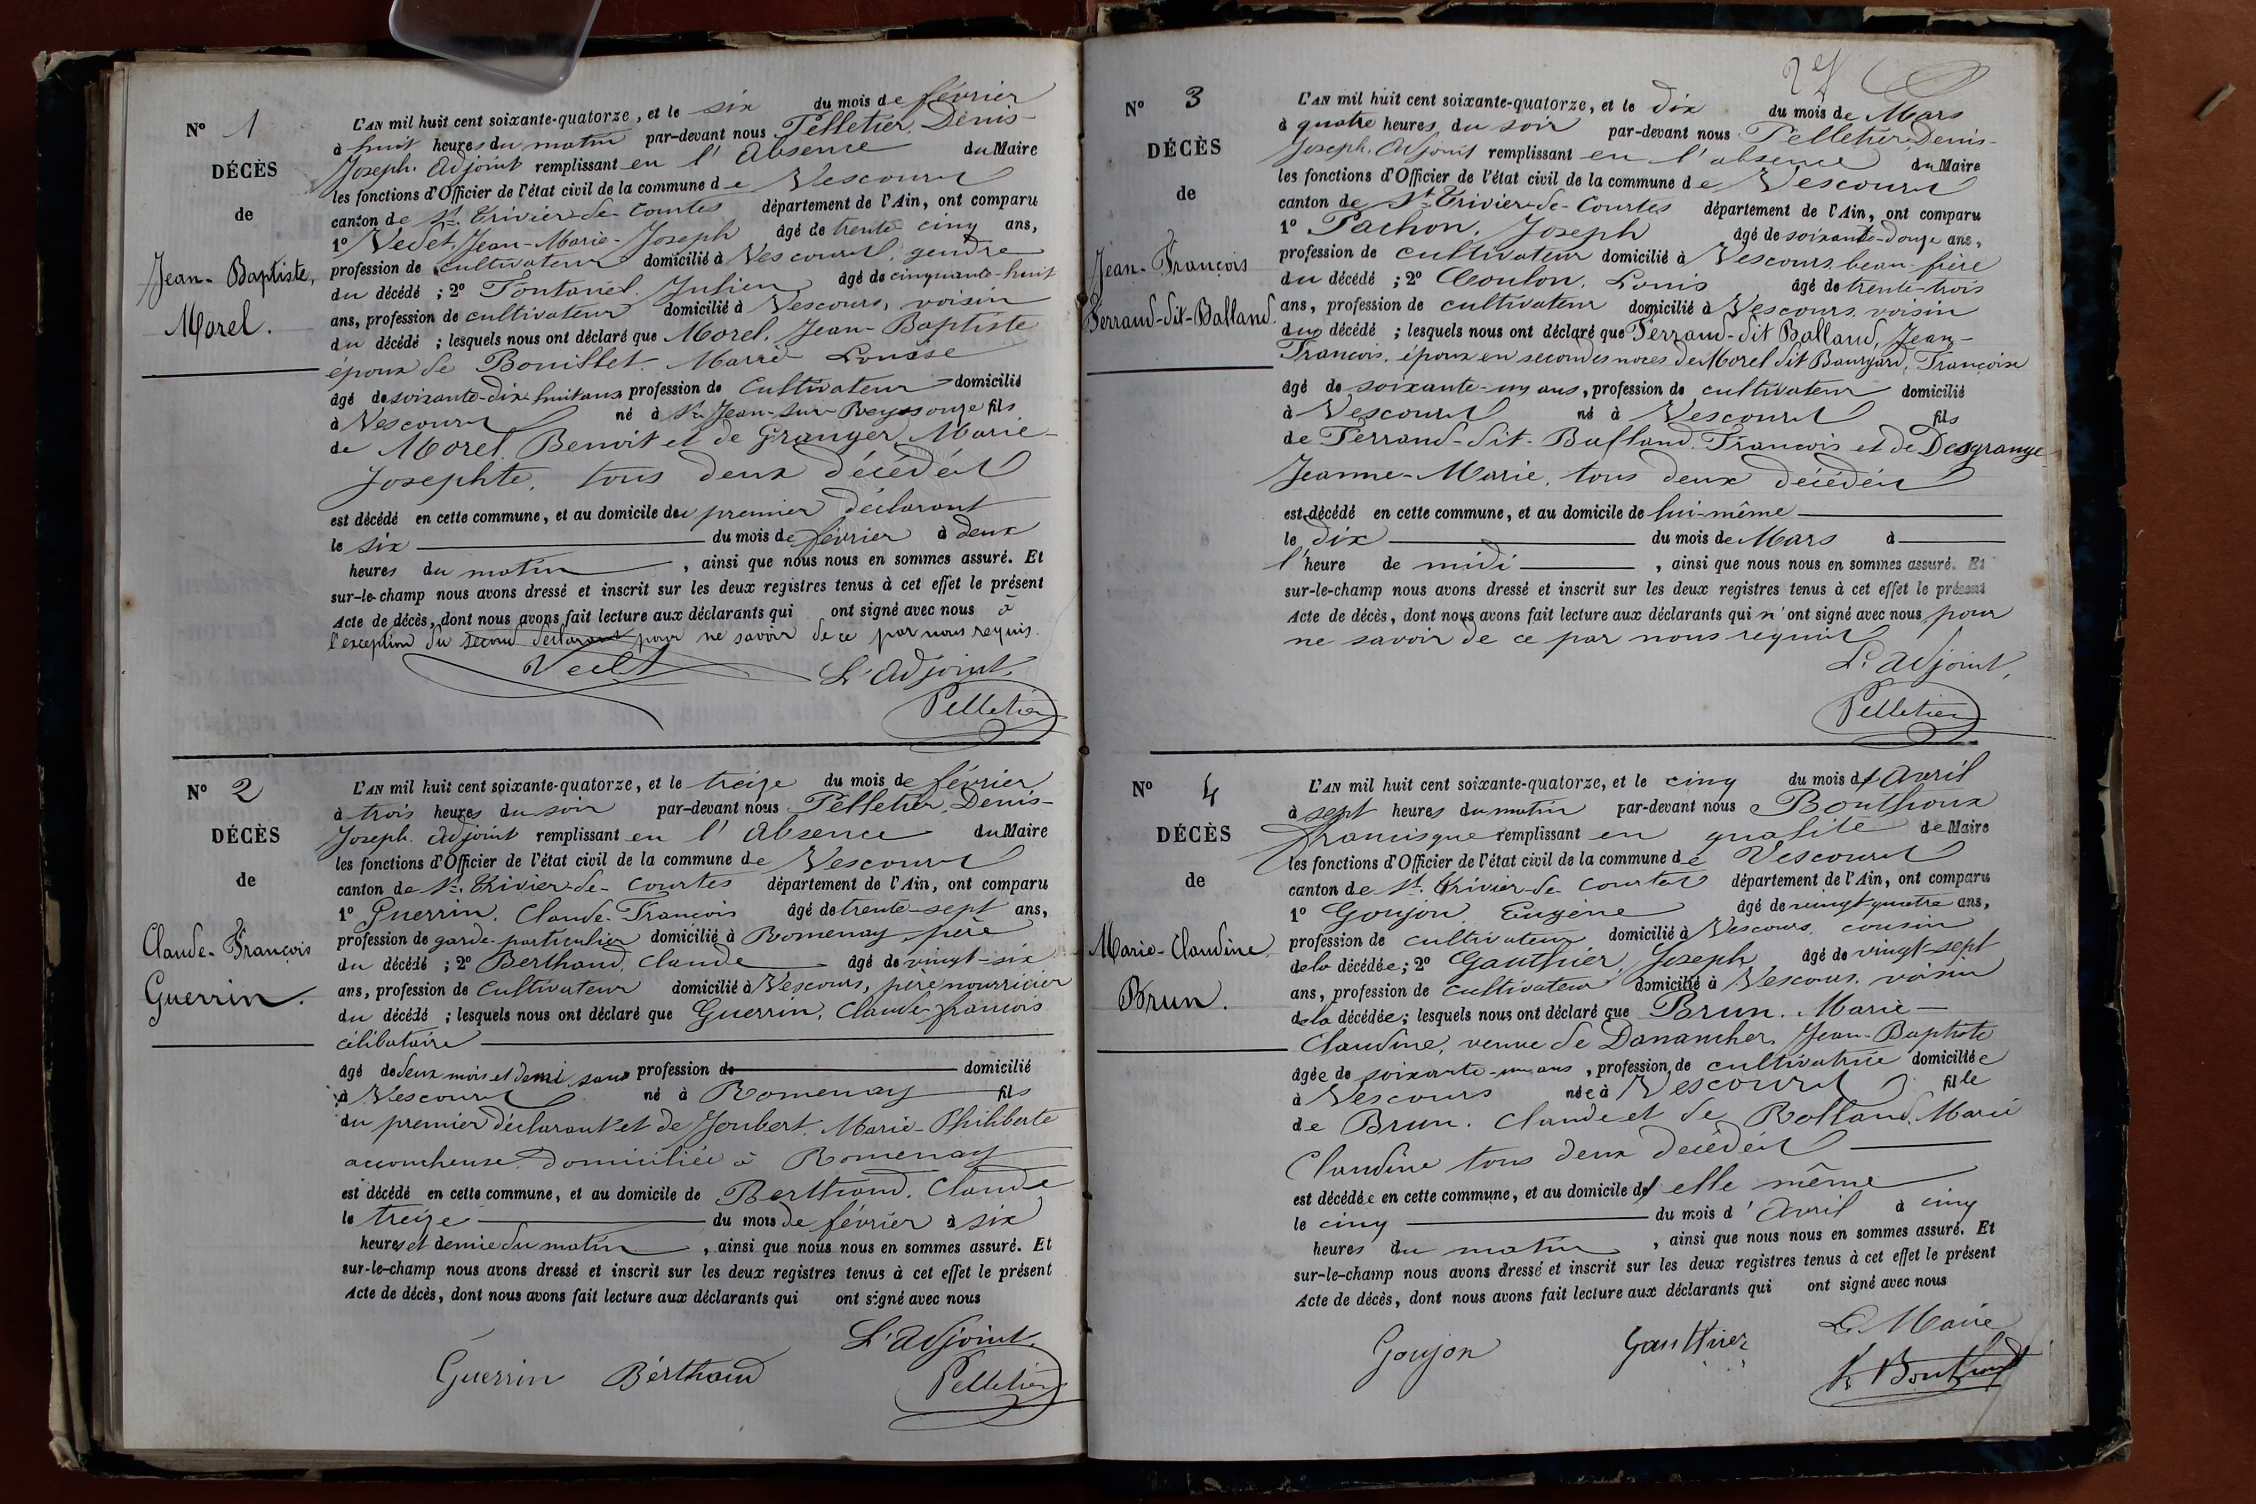 N° 1
DÉCÈS
de
Jean-Baptiste,
Morel.
L'AN mil huit cent soixante-quatorze, et le six du mois de février
à huit heures du matin par-devant nous Pelletier, Denis-
Joseph. Adjoint remplissant en l'Absence du Maire
les fonctions d'Officier de l'état civil de la commune de Vescours
canton de St. Trivier-de-Courtes département de l'Ain, ont comparu
1° Vedet, Jean-Marie-Joseph âgé de trente cinq ans,
profession de cultivateur domicilié à Vescours, gendre
du décédé ; 2° Fontanel. Julien âgé de cinquante-huit
ans, profession de cultivateur domicilié à Vescours, voisin
du décédé ; lesquels nous ont déclaré que Morel. Jean-Baptiste
époux de Bouillet. Louise
âgé de soixante-dix-huit ans profession de cultivateur domicilié
à Vescours né à St. Jean-sur-Reyssouze fils
de Morel. Benoit et de Granger, Marie-
Josephte, tous deux décédés
est décédé en cette commune, et au domicile du premier déclarant
le six du mois de février à deux
heures du matin, ainsi que nous nous en sommes assuré. Et
sur-le-champ nous avons dressé et inscrit sur les deux registres tenus à cet effet le présent
Acte de décès, dont nous avons fait lecture aux déclarants qui ont signé avec nous à
l'exception du second déclarant pour ne savoir de ce par nous requis.
L'Adjoint,
Pelletier
N° 2
DÉCÈS
de
Claude-François
Guerrin.
L'AN mil huit cent soixante-quatorze, et le treize du mois de février
à trois heures du soir par-devant nous Pelletier, Denis-
Joseph. adjoint remplissant en l'Absence du Maire
les fonctions d'Officier de l'état civil de la commune de Vescours
canton de St. Trivier-de-Courtes département de l'Ain, ont comparu
1° Guerrin. Claude-François âgé de trente-sept ans,
profession de garde-particulier domicilié à Romenay, père
du décédé ; 2° Berthaud, Claude âgé de vingt-six
ans, profession de cultivateur domicilié à Vescours, père nourricier
du décédé ; lesquels nous ont déclaré que Guerrin, Claude françois
célibataire
âgé de deux mois et demi sans profession de domicilié
à Vescours né à Romenay fils
du premier déclarant et de Joubert. Marie-Philiberte
accoucheuse, domiciliée à Romenay
est décédé en cette commune, et au domicile de Berthaud. Claude
le treize du mois de février à six
heures et demie du matin, ainsi que nous nous en sommes assuré. Et
sur-le-champ nous avons dressé et inscrit sur les deux registres tenus à cet effet le présent
Acte de décès, dont nous avons fait lecture aux déclarants qui ont signé avec nous
L'adjoint,
Guerrin Berthaud Pelletier
N° 3
DÉCÈS
de
Jean-François
Ferrand-dit-Balland.
L'AN mil huit cent soixante-quatorze, et le dix du mois de Mars
à quatre heures du soir par-devant nous Pelletier Denis-
Joseph. Adjoint remplissant en l'absence du Maire
les fonctions d'Officier de l'état civil de la commune de Vescours
canton de St. Trivier-de-Courtes département de l'Ain, ont comparu
1° Pachon, Joseph âgé de soixante-douze ans,
profession de cultivateur domicilié à Vescours, beau-frère
du décédé ; 2° Coulon. Louis âgé de trente-trois
ans, profession de cultivateur domicilié à Vescours, voisin
du décédé ; lesquels nous ont déclaré que Ferrand-dit Balland, Jean-
François, époux en secondes noces de Morel dit Françoise
âgé de soixante-un ans, profession de cultivateur domicilié
à Vescours né à Vescours fils
de Ferrand-dit-Balland. François et de Desgrange
Jeanne-Marie, tous deux décédés
est décédé en cette commune, et au domicile de lui-même
le dix du mois de Mars à
l'heure de midi, ainsi que nous nous en sommes assuré. Et
sur-le-champ nous avons dressé et inscrit sur les deux registres tenus à cet effet le présent
Acte de décès, dont nous avons fait lecture aux déclarants qui n'ont signé avec nous pour
ne savoir de ce par nous requis
L'adjoint,
Pelletier
N° 4
DÉCÈS
de
Marie-Claudine
Brun.
L'AN mil huit cent soixante-quatorze, et le cinq du mois d'avril
à sept heures du matin par-devant nous Bouthoux
francisque remplissant en qualité de Maire
les fonctions d'Officier de l'état civil de la commune de Vescours
canton de St. Trivier-de-Courtes département de l'Ain, ont comparu
1° Goujon Eugène âgé de vingt-quatre ans,
profession de cultivateur domicilié à Vescours, cousin
de la décédée ; 2° Gauthier, Joseph âgé de vingt-sept
ans, profession de cultivateur domicilié à Vescours, voisin
de la décédée ; lesquels nous ont déclaré que Brun. Marie-
Claudine, veuve de Danancher, Jean-Baptiste
âgée de soixante-un ans, profession de cultivatrice domiciliée
à Vescours née à Vescours fille
de Brun. Claude et de Rolland, Marie
Claudine tous deux décédés
est décédée en cette commune, et au domicile d'elle même
le cinq du mois d'Avril à cinq
heures du matin, ainsi que nous nous en sommes assuré. Et
sur-le-champ nous avons dressé et inscrit sur les deux registres tenus à cet effet le présent
Acte de décès, dont nous avons fait lecture aux déclarants qui ont signé avec nous
Le Maire
Goujon Gauthier